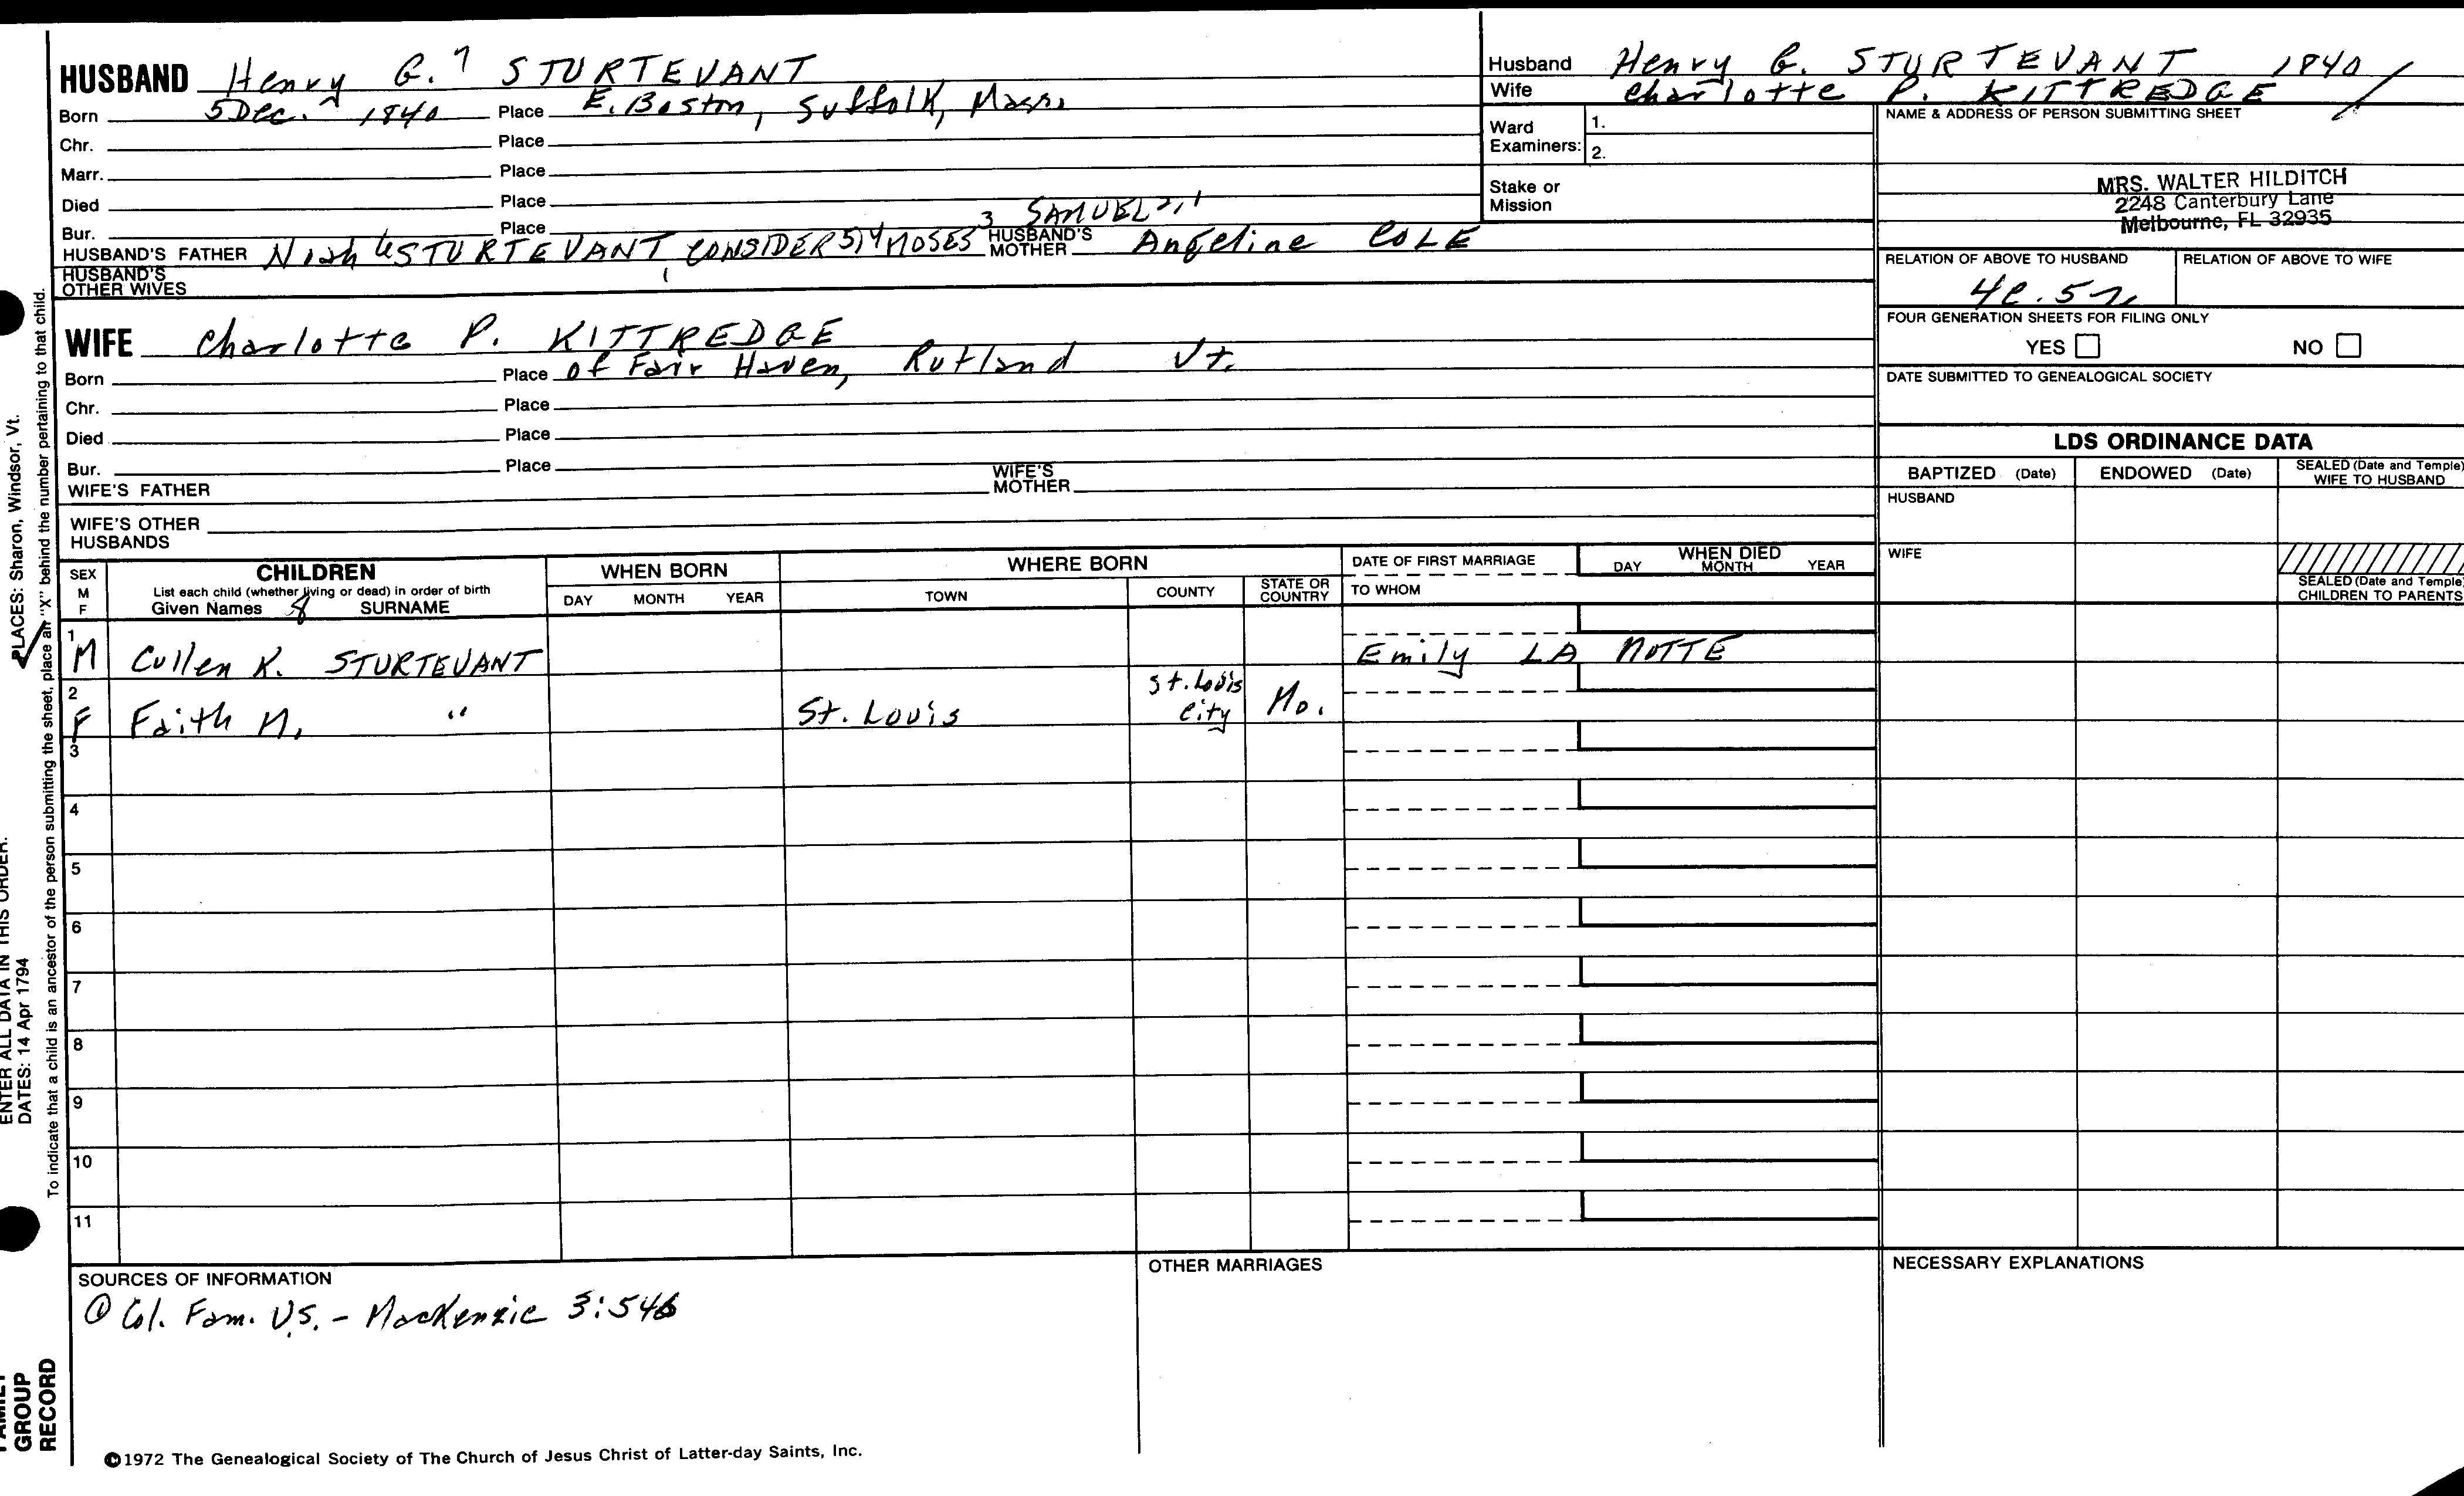 HUSBAND Henry G.7 STURTEVANT
Born 5 Dec. 1840 Place E. Boston, Suffolk, Mass.
Chr. Place
Marr. Place
Died Place
Bur. Place
3 SAMUEL 2,1
HUSBAND'S FATHER Noah 6 STURTEVANT, CONSIDER 5,4 MOSES HUSBAND'S MOTHER Angeline COLE
HUSBAND'S OTHER WIVES
WIFE Charlotte P. KITTREDGE
Born Place of Fair Haven, Rutland Vt.
Chr. Place
Died Place
Bur. Place
WIFE'S FATHER WIFE'S MOTHER
WIFE'S OTHER HUSBANDS
Husband Henry G. STURTEVANT 1840
Wife Charlotte P. KITTREDGE
Ward Examiners: 1.
2.
Stake or Mission
NAME & ADDRESS OF PERSON SUBMITTING SHEET
MRS. WALTER HILDITCH
2248 Canterbury Lane
Melbourne, FL 32935
RELATION OF ABOVE TO HUSBAND RELATION OF ABOVE TO WIFE
4c. 5r
FOUR GENERATION SHEETS FOR FILING ONLY
YES NO
DATE SUBMITTED TO GENEALOGICAL SOCIETY
LDS ORDINANCE DATA
BAPTIZED (Date) ENDOWED (Date) SEALED (Date and Temple) WIFE TO HUSBAND
HUSBAND
WIFE
SEALED (Date and Temple) CHILDREN TO PARENTS
SEX M F
CHILDREN
List each child (whether living or dead) in order of birth
Given Names 8 SURNAME
WHEN BORN
DAY MONTH YEAR
WHERE BORN
TOWN COUNTY STATE OR COUNTRY
DATE OF FIRST MARRIAGE
TO WHOM
WHEN DIED
DAY MONTH YEAR
1 M Cullen K. STURTEVANT Emily LA MOTTE
2 F Faith M. " St. Louis St. Louis City Mo.
3
4
5
6
7
8
9
10
11
SOURCES OF INFORMATION
① Col. Fam. U.S. - MacKenzie 3:546
OTHER MARRIAGES
NECESSARY EXPLANATIONS
©1972 The Genealogical Society of The Church of Jesus Christ of Latter-day Saints, Inc.
To indicate that a child is an ancestor of the person submitting the sheet, place an "X" behind the number pertaining to that child.
ENTER ALL DATA IN THIS ORDER:
PLACES: Sharon, Windsor, Vt.
DATES: 14 Apr 1794
FAMILY
GROUP
RECORD